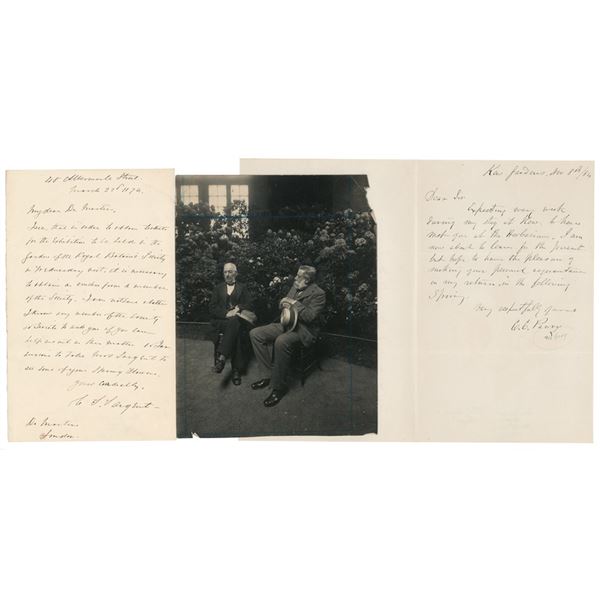 48 Albemarle Street.
March 22d 1874.
My dear Dr. Masters,
I see that in order to obtain tickets
for the Exhibition to be held in the
Garden of the Royal Botanic Society
on Wednesday next, it is necessary
to obtain an order from a member
of the Society. I am
I know any member of the Society
to you if you can
help us out in this matter.
to take Mrs Sargent to
see some of your Spring flowers.
Yours cordially,
C. S. Sargent
Dr. Masters
London.
Kew Gardens, 8th /84
Dear Sir
Expecting every week
during my stay at Kew, to have
met you at the Herbarium, I am
now about to leave for the present
but hope to have the pleasure of
making your personal acquaintance
on my return, in the following
Spring.
Very respectfully yours
C. C. Parry